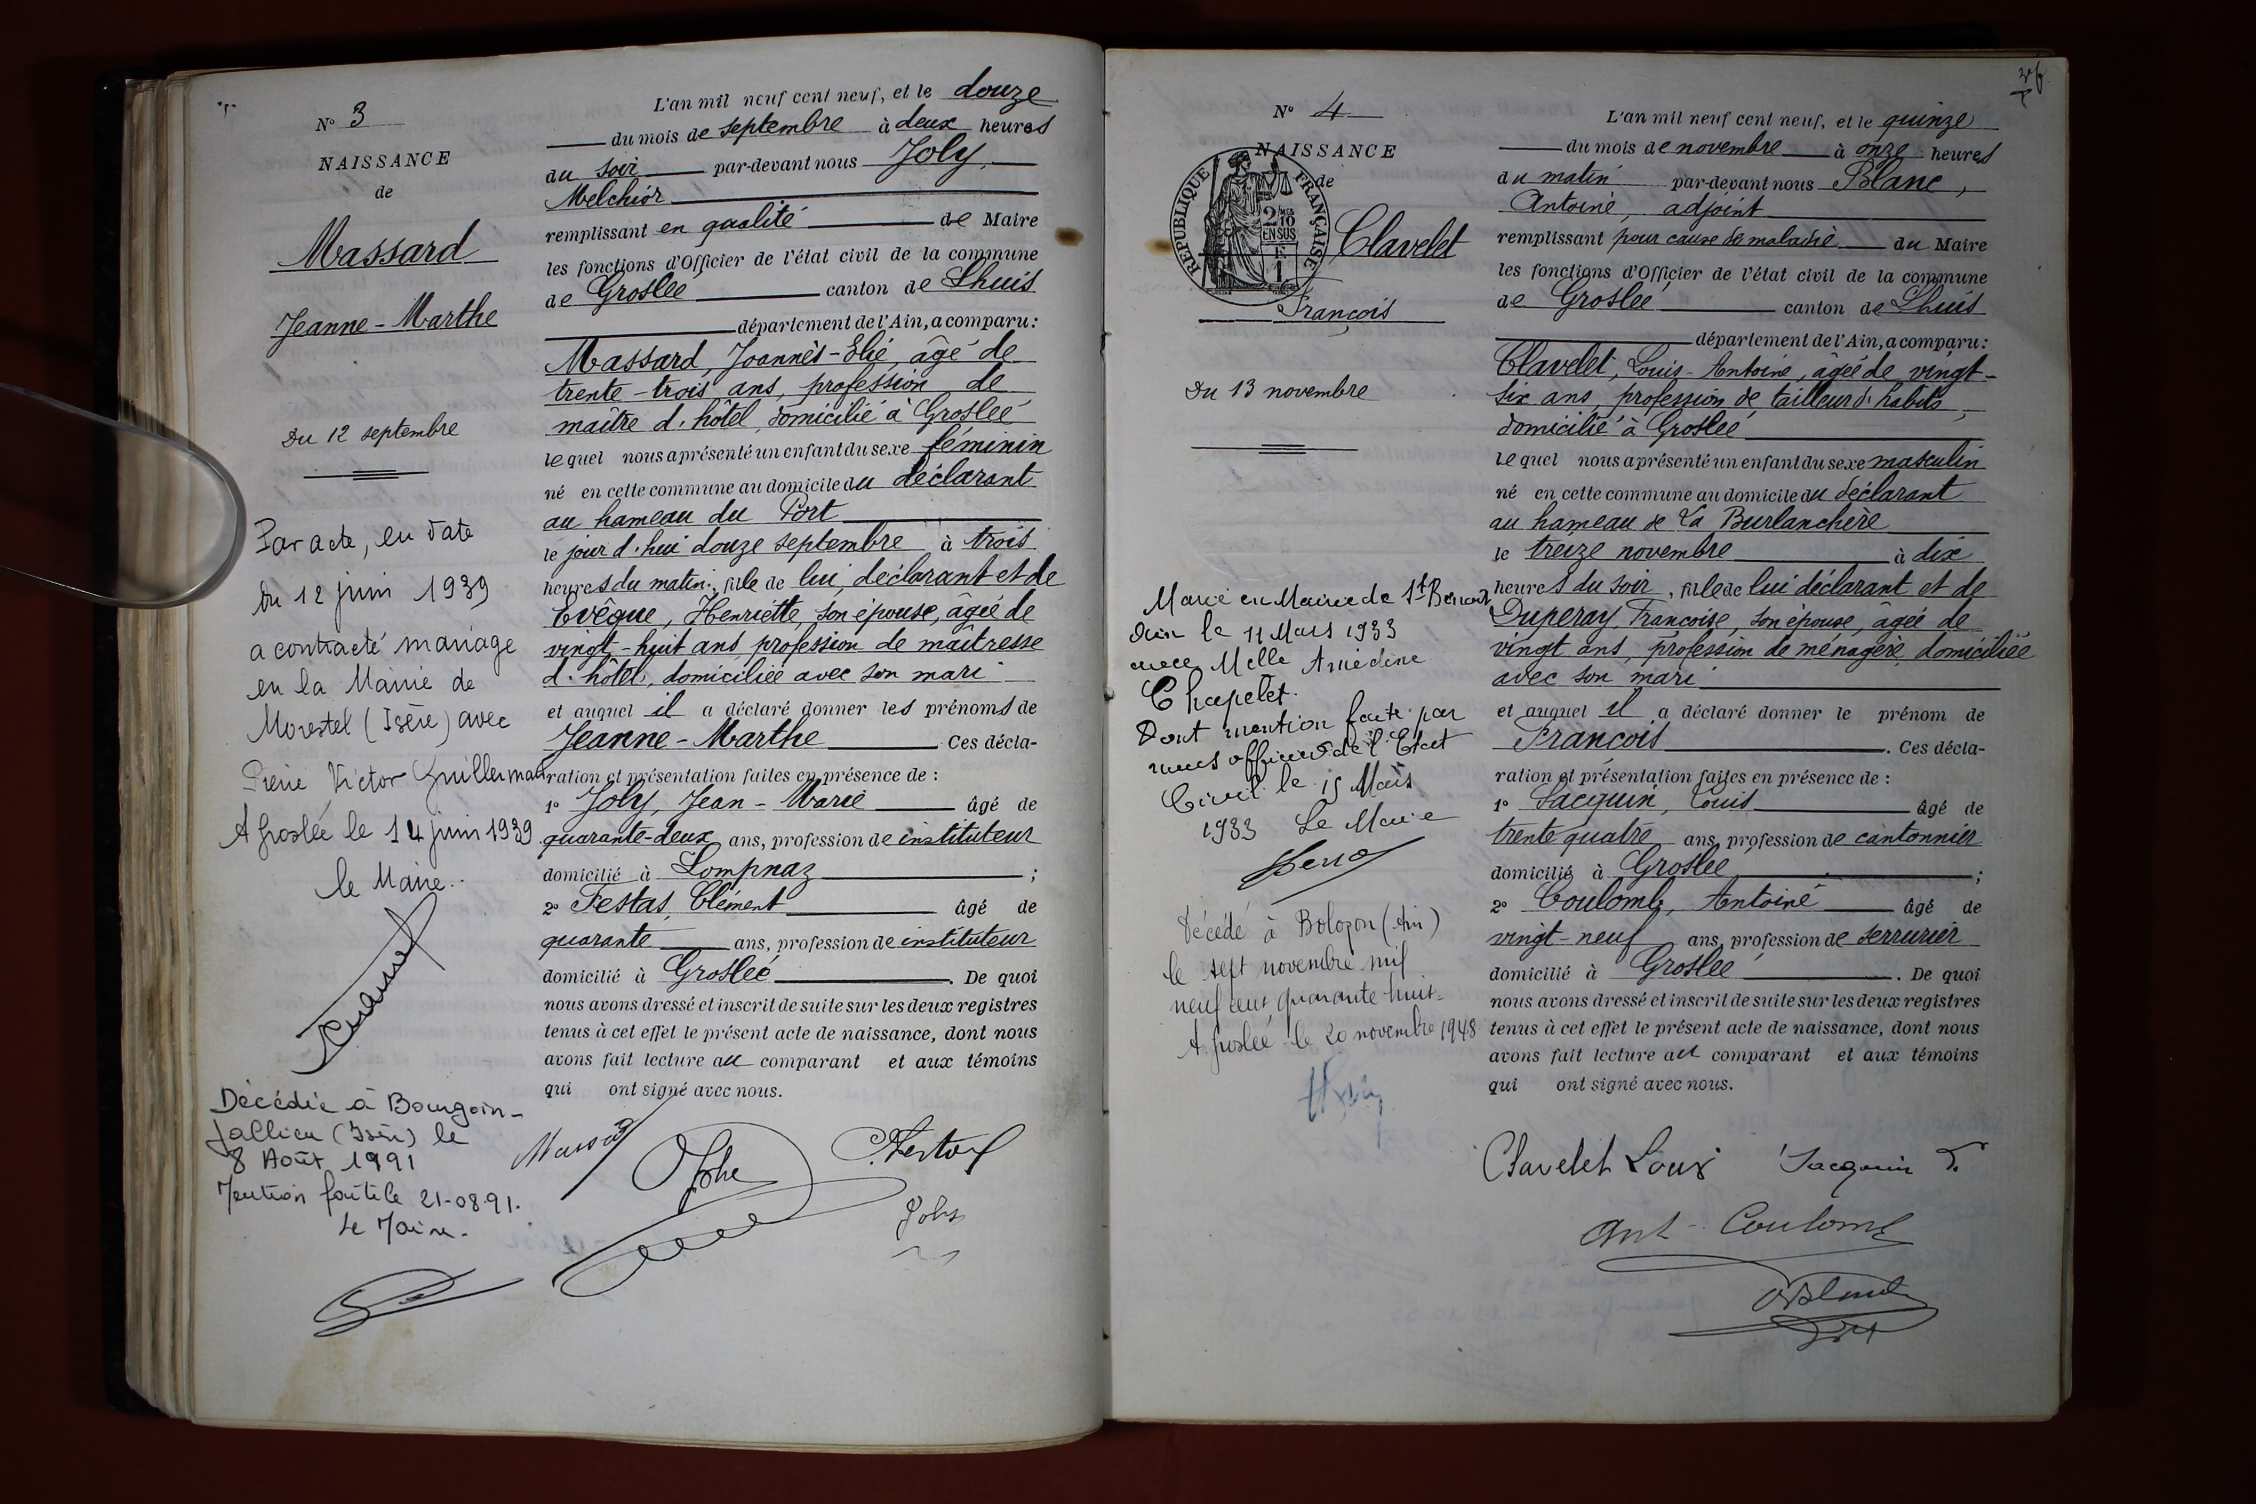 N° 3
NAISSANCE
de
Massard
Jeanne-Marthe
Du 12 septembre
Par acte, en date
du 12 juin 1939
a contracté mariage
en la Mairie de
Morestel (Isère) avec
Victor Guillermard
A Groslée le 14 juin 1939
le Maire.
Décédée à Bourgoin-
Jallieu (Isère) le
8 Août 1991
Mention faite le 21-08-91.
Le Maire.
L'an mil neuf cent neuf, et le douze
du mois de septembre à deux heures
du soir par-devant nous Joly,
Melchior
remplissant en qualité de Maire
les fonctions d'Officier de l'état civil de la commune
de Groslée canton de Lhuis
département de l'Ain, a comparu:
Massard, Joannès-Elie, âgé de
trente-trois ans, profession de
maître d'hôtel, domicilié à Groslée
lequel nous a présenté un enfant du sexe féminin
né en cette commune au domicile du déclarant
au hameau du Port
le jour d'hui douze septembre à trois
heures du matin, fille de lui, déclarant et de
Evêque, Henriette, son épouse, âgée de
vingt-huit ans, profession de maîtresse
d'hôtel, domiciliée avec son mari
et auquel il a déclaré donner les prénoms de
Jeanne-Marthe Ces décla-
ration et présentation faites en présence de :
1° Joly, Jean-Marie âgé de
quarante-deux ans, profession de instituteur
domicilié à Lompnaz ;
2° Festas, Clément âgé de
quarante ans, profession de instituteur
domicilié à Groslée. De quoi
nous avons dressé et inscrit de suite sur les deux registres
tenus à cet effet le présent acte de naissance, dont nous
avons fait lecture au comparant et aux témoins
qui ont signé avec nous.
Massard
Joly
C. Festas
Joly
N° 4
NAISSANCE
de
RÉPUBLIQUE FRANÇAISE
2/10
EN SUS
F.
1
Clavelet
François
Du 13 novembre
Marié en Mairie de St Benoit
Ain le 11 Mars 1933
avec Melle Amédine
Chapelet.
Dont mention faite par
nous officier de l'Etat
Civil le 15 Mars
1933 Le Maire
Décédé à Bolozon (Ain)
le sept novembre mil
neuf cent quarante huit.
A Groslée le 20 novembre 1948
L'an mil neuf cent neuf, et le quinze
du mois de novembre à onze heures
du matin par-devant nous Blanc,
Antoine, adjoint
remplissant pour cause de maladie du Maire
les fonctions d'Officier de l'état civil de la commune
de Groslée canton de Lhuis
département de l'Ain, a comparu:
Clavelet, Louis-Antoine, âgé de vingt-
six ans, profession de tailleur d'habits,
domicilié à Groslée
lequel nous a présenté un enfant du sexe masculin
né en cette commune au domicile du déclarant
au hameau de La Burlanchère
le treize novembre à dix
heures du soir, fils de lui déclarant et de
Duperay, Françoise, son épouse, âgée de
vingt ans, profession de ménagère, domiciliée
avec son mari
et auquel il a déclaré donner le prénom de
François. Ces décla-
ration et présentation faites en présence de :
1° Jacquin, Louis âgé de
trente quatre ans, profession de cantonnier
domicilié à Groslée ;
2° Coulomb, Antoine âgé de
vingt-neuf ans, profession de serrurier
domicilié à Groslée. De quoi
nous avons dressé et inscrit de suite sur les deux registres
tenus à cet effet le présent acte de naissance, dont nous
avons fait lecture au comparant et aux témoins
qui ont signé avec nous.
Clavelet Louis Jacquin L.
Ant. Coulomb
A Blanc